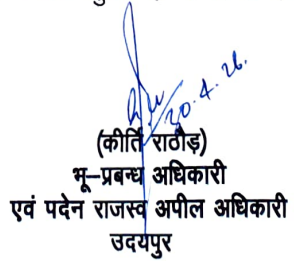 30.4.26.
(कीर्ति राठौड़)
भू–प्रबन्ध अधिकारी
एवं पदेन राजस्व अपील अधिकारी
उदयपुर